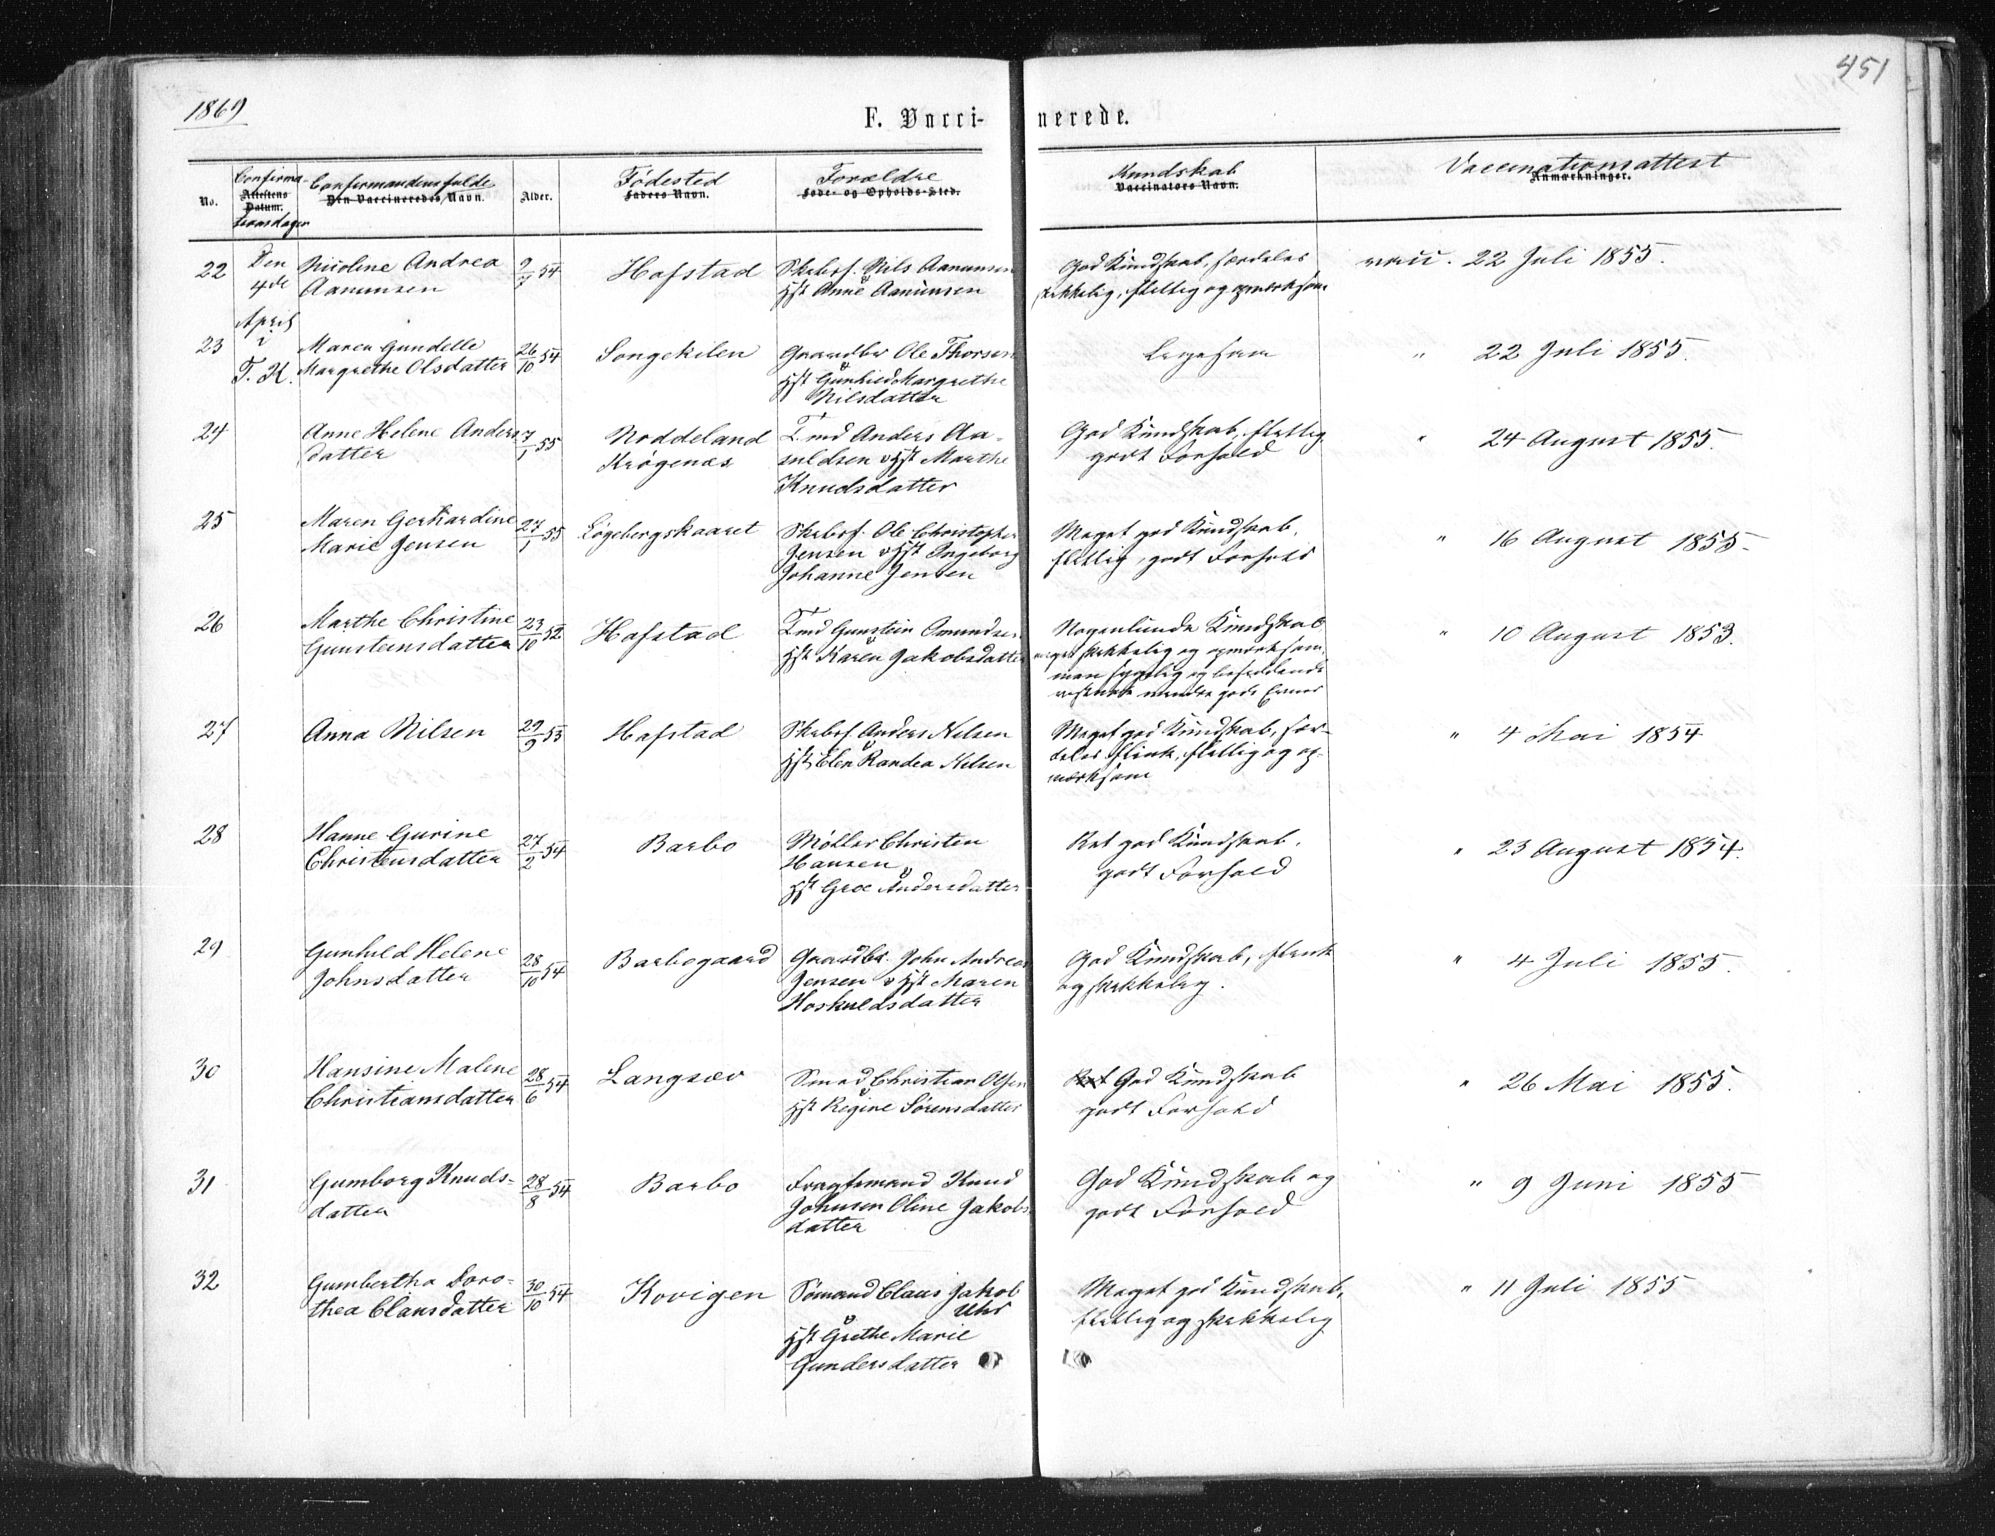 451
1869
F. Vacci- nerede.
No.
Confirma-
Attestens
Datum.
tionsdagen
Confirmandens fulde
Den Vaccineredes Navn.
Alder.
Fødested
Faders Navn.
Forældre
Føde- og Opholds-Sted.
Kundskab
Vaccinators Navn.
Vaccinationsattest
Anmærkninger.
22 Den 4de April i T. K. Nicoline Andrea
Aanunsen
9/7 54 Hafstad
Skibsf. Nils Aanunsen
Hst Anne Aanunsen
God Kundskab, særdeles
skikkelig, flittig og opmærksom
vacc. 22 Juli 1855.
23 Maren Gundelle
Margrethe Olsdatter
26/10 54 Songekilen
Gaardbr Ole Thorsen
Hst Gunhild Margrethe
Nilsdatter
Ligesom
" 22 Juli 1855.
24 Anne Helene Anders
datter
7/1 55 Noddeland
Krøgenæs
T. md Anders Aa-
suldsen og Hst Marthe
Knudsdatter
God Kundskab, flittig
godt Forhold
" 24 August 1855.
25 Maren Gerhardine
Marie Jensen
27/1 55 Løgebergskaaret
Skibsf. Ole Christopher
Jensen og Hst Ingeborg
Johanne Jensen
Meget god Kundskab,
flittig, godt Forhold
" 16 August 1855.
26 Marthe Christine
Gunsteinsdatter
23/10 52 Hafstad
T.md Gunstein Omundsen
Hst Karen Jakobsdatter
Nogenlunde Kundskab
meget skikkelig og opmærksom,
men sygelig og
mindre gode Evner
" 10 August 1853.
27 Anna Nilsen
29/9 53 Hafstad
Skibsf. Anders Nilsen
Hst Elen Randea Nilsen
Meget god Kundskab, sær-
deles flink, flittig og op-
mærksom
" 4 Mai 1854
28 Hanne Gurine
Christensdatter
27/2 54 Barbo
Møller Christen
Hansen og
Hst Groe Andersdatter
Ret god Kundskab,
godt Forhold
" 23 August 1854.
29 Gunhild Helene
Johnsdatter
28/10 54 Barbogaard
Gaardbr. John Andreas
Jensen og Hst Maren
Hoskuldsdatter
God Kundskab, flink
og skikkelig.
" 4 Juli 1855.
30 Hansine Malene
Christiansdatter
28/6 54 Langsæv
Smed Christian Olsen
Hst Regine Sørensdatter
Ret God Kundskab
godt Forhold
" 26 Mai 1855.
31 Gumborg Knuds-
datter
28/8 54 Barbo
Fragtemand Knud
Johnsen Oline Jakobs-
datter
God Kundskab og
godt Forhold
" 9 Juni 1855
32 Gumbertha Doro-
thea Clausdatter
30/10 54 Kovigen
Sømand Claus Jakob
Uhr
Hst Grethe Marie
Gundersdatter
Meget god Kundskab,
flittig og skikkelig
" 11 Juli 1855